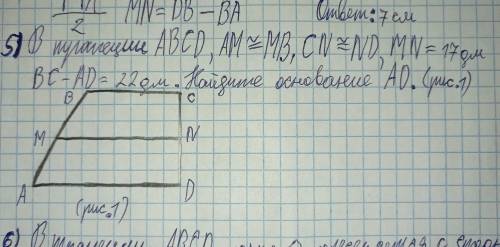 2 MN = DB - BA Ответ: 7 см
5) В трапеции ABCD, AM≅MB, CN≅ND, MN = 17дм
BC-AD = 22дм. Найдите основание AD. (рис.1)
B C
M N
A D
(рис.1)
6) В трапеции ABCD,